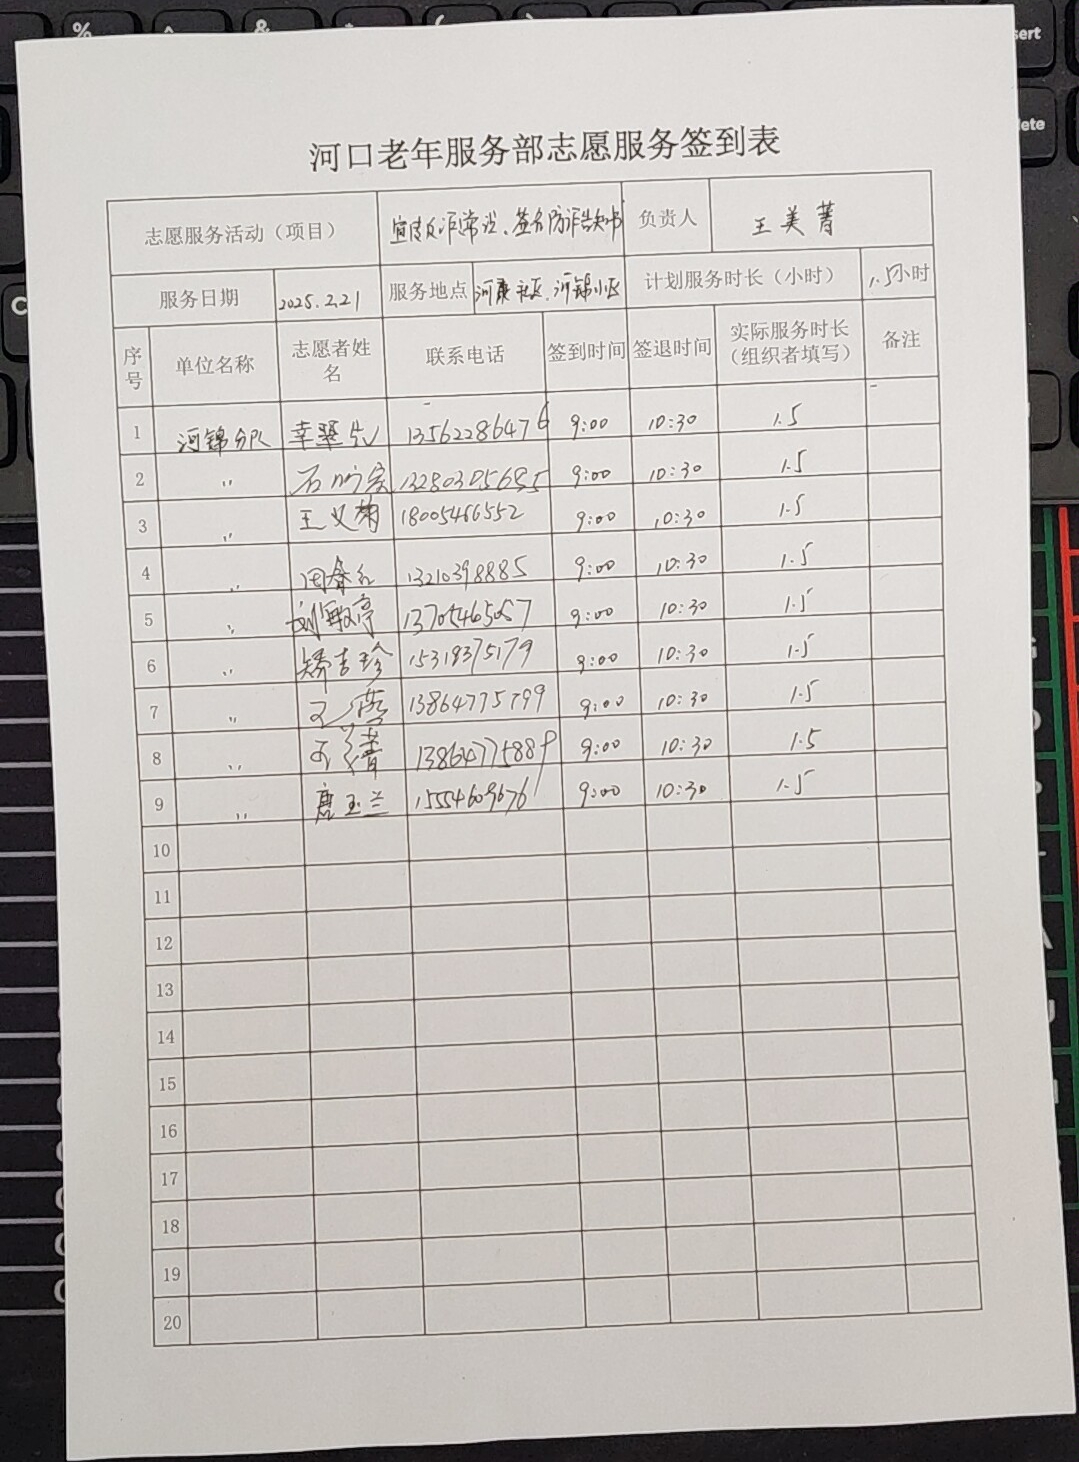 河口老年服务部志愿服务签到表
志愿服务活动（项目） 宣传反诈常识、签名防诈告知书 负责人 王美菁
服务日期 2025.2.21 服务地点 河康社区、河锦小区 计划服务时长（小时） 1.5小时
序号 单位名称 志愿者姓名 联系电话 签到时间 签退时间 实际服务时长（组织者填写） 备注
1 河锦分队 13562286476 9:00 10:30 1.5
2 〃 石 13280305685 9:00 10:30 1.5
3 〃 王义菊 18005466552 9:00 10:30 1.5
4 〃 周春红 13210398885 9:00 10:30 1.5
5 〃 刘敏亭 13705465057 9:00 10:30 1.5
6 〃 矫吉珍 15318375179 9:00 10:30 1.5
7 〃 13864775799 9:00 10:30 1.5
8 〃 13864775889 9:00 10:30 1.5
9 〃 唐玉兰 15554609676 9:00 10:30 1.5
10
11
12
13
14
15
16
17
18
19
20